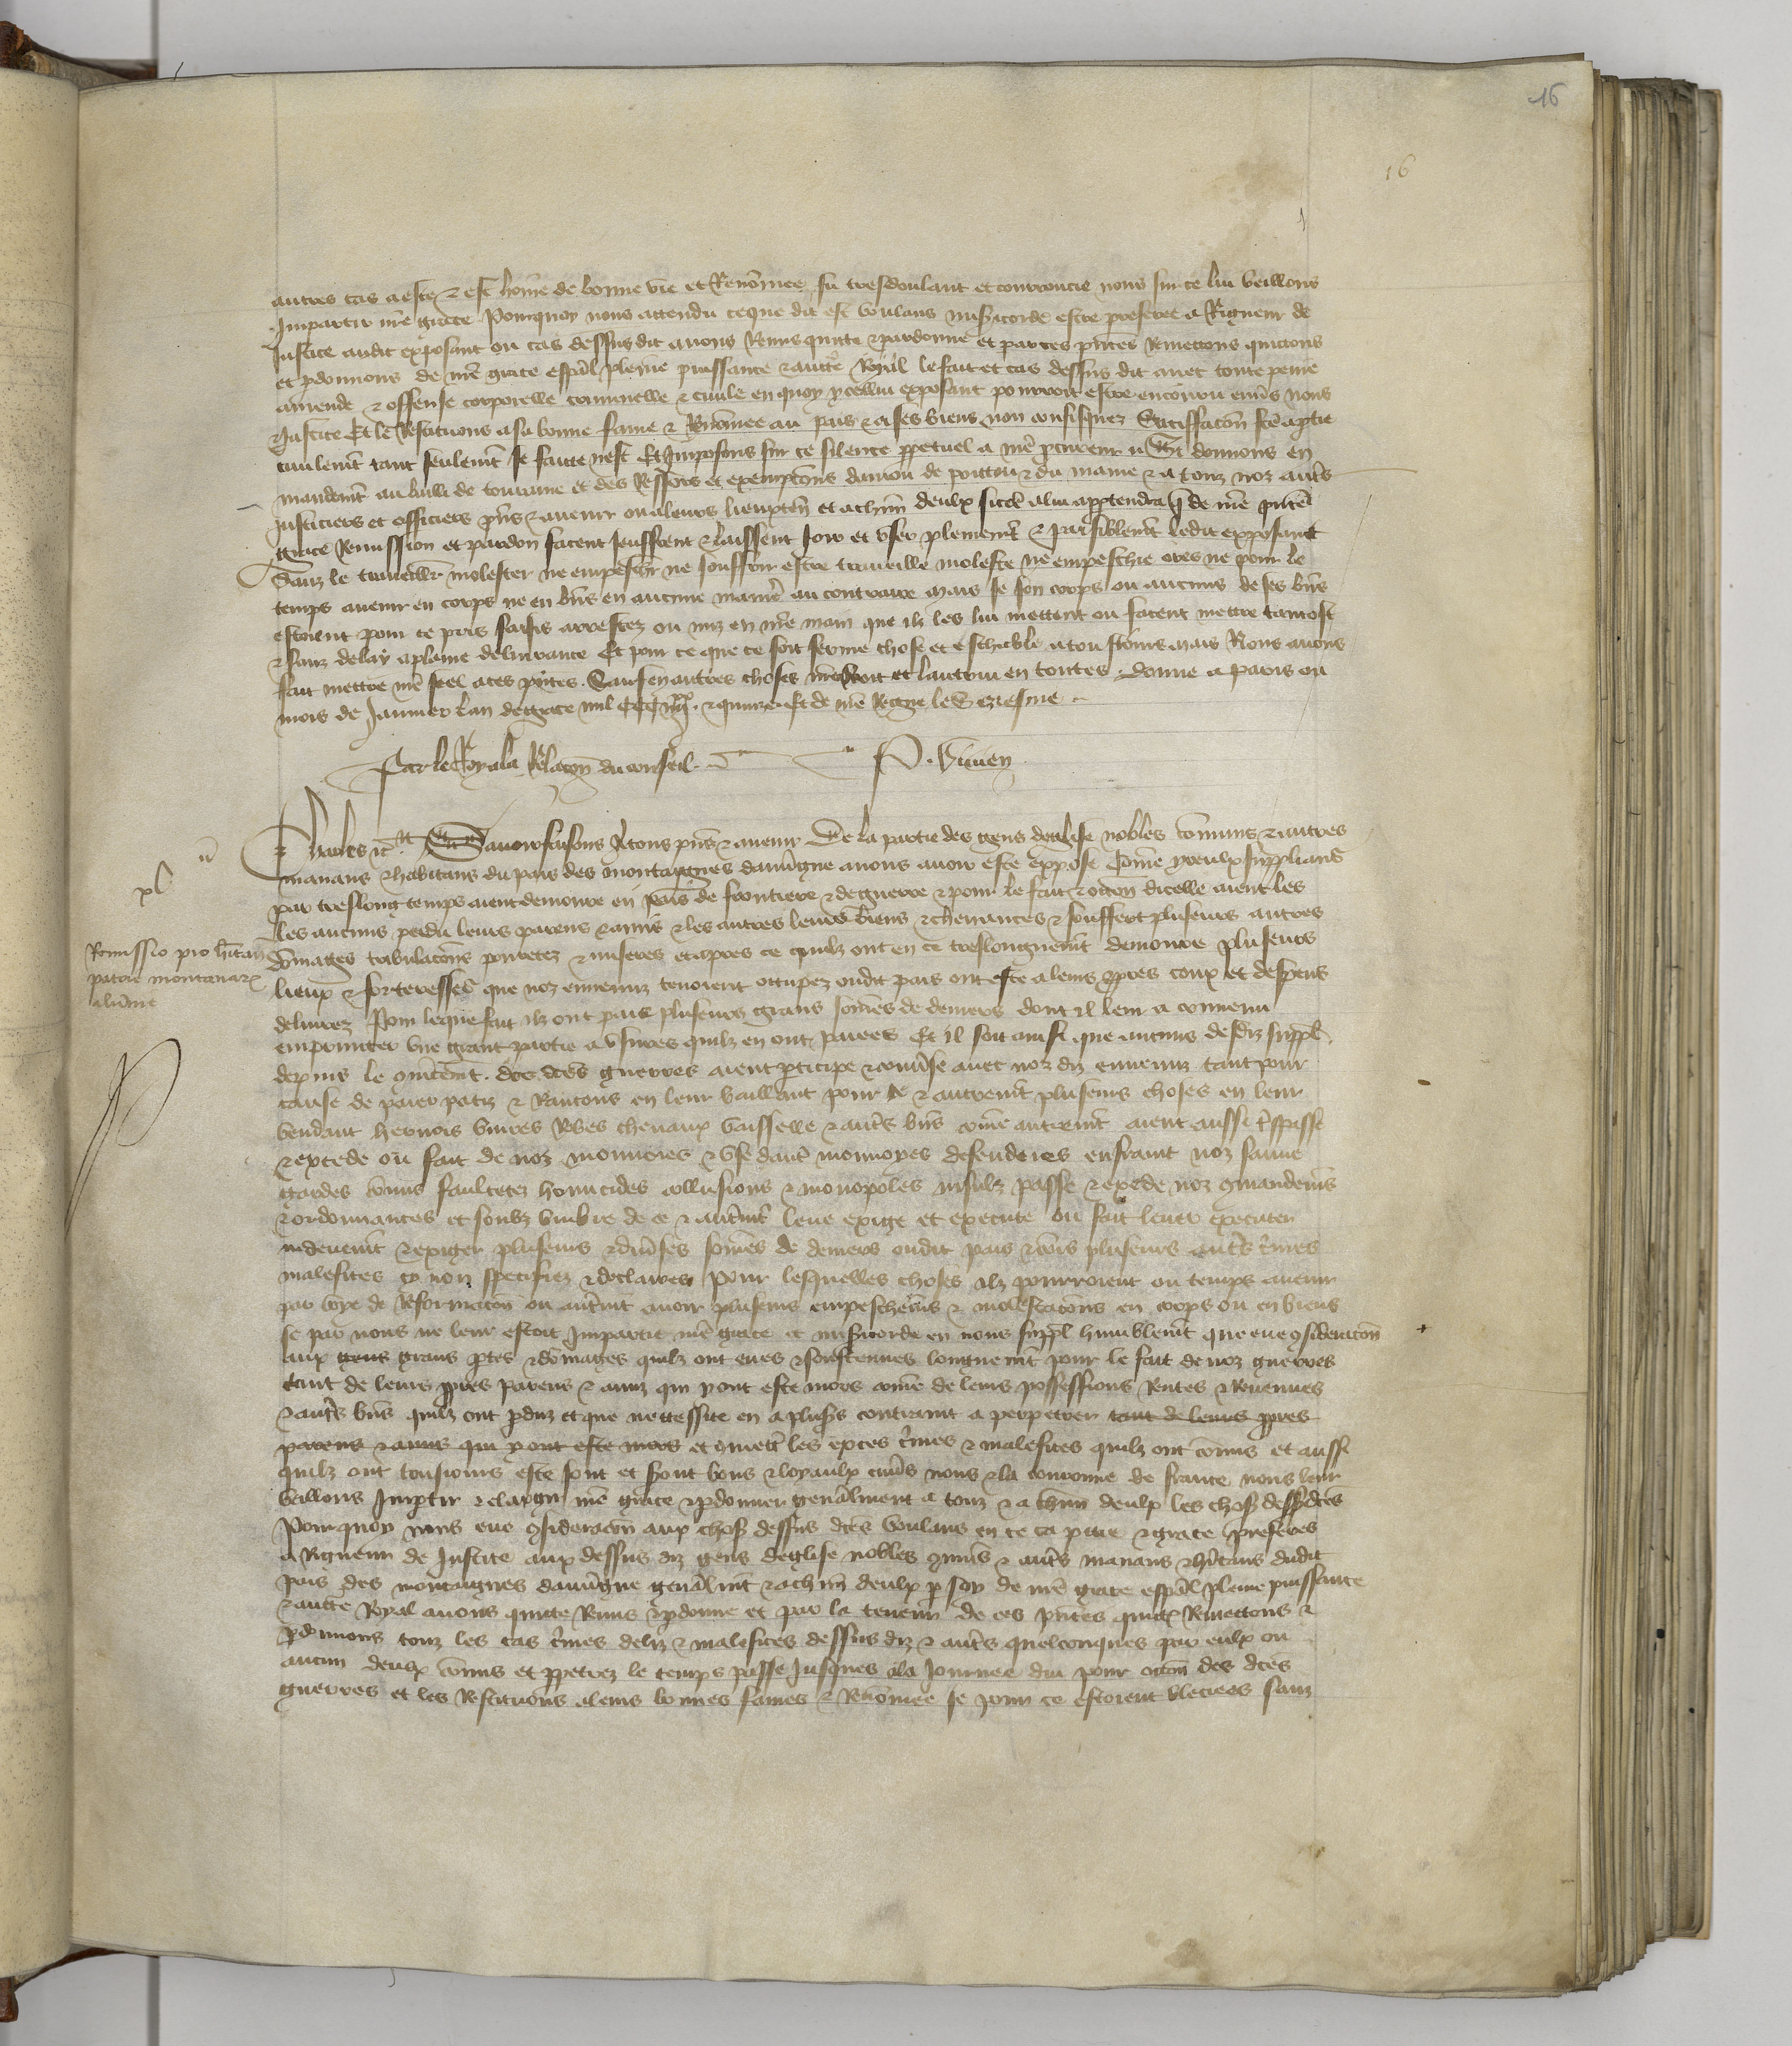 16
16
autres cas a este & est home de bonne vie et Renomee fu tresdoulant et courroucie nous sur ce lui veillons
Impartir nre grace Pourquoy nous attendu ce que dit est voulans misericorde estre preferee a Rigueur de
Justice audit exposant ou cas dessus dit avons Remis quitte & pardonne et par ces pntes Remettons quittons
et pdonnons de nre grace espal plenne puissance & autte Royal le fait et cas dessus dit avec toute peine
amende & offense corporelle criminelle & civile en quoy ycellui exposant pourroit estre encouru envs nous
& Justice Et le Restituons a sa bonne fame & Renomee au pais & a ses biens non confisquez Satisfacon fce a ptie
civilemt tant seulemt se faicte nest Et Imposons sur ce silence ppetuel a nre pcureur Si donnons en
mandemt au bailli de touraine et des Ressors et exempcons daniou de poitou & du maine & a touz noz auts
Justiciers et officiers pns & avenir ou a leurs lieuxten et a chun deulx sicoe a lui apptendra q de nre pnte
grace Remission et pardon facent seuffrent & laissent Joir et user plenemt & paisiblemt ledit exposant
Sanz le travaillr molester ne empeschr ne souffrir estre travaille moleste ne empeschie ores ne pour le
temps avenir en corps ne en bns en aucune manre au contraire mais se son corps ou aucuns de ses bns
estoient pour ce pris saisis arrestez ou mis en nre main que ilz les lui mettent ou facent mettre tantost
& sanz delay a plaine delivrance Et pour ce que ce soit ferme chose et estable a tousiours mais Nous avons
fait mettre nre seel a ces pntes. Sauf en autres choses nre droit et lautrui en toutes. Donne a paris ou
mois de Janvier lan de grace mil CCC iiiixx & quinze & de nre Regne le Seziesme
Par le Roy a la Relacon du conseil. P. Vivien
xl
Charles &c. Savoir faisons a tous pns & avenir De la partie des gens deglise nobles comuns & autres
manans & habitans du pais des montaignes dauvgne avons avoir este expose Come yceulx supplians
par treslong temps aient demoure en pais de frontiere & de guerre & pour le fait & occon dicelle aient les
les aucuns perdu leurs parens & amis & les autres leurs biens & chevances & souffert pluseurs autres
Remissio pro hitan
patrie montanarx
alvnie
domages tribulacons povretez & miseres et apres ce quilz ont en ce treslonguemt demoure pluseurs
lieux & forteresses que noz ennemiz tenoient occupez oudit pais ont este a leurs ppres coux et despens
delivrez Pour lequel fait ilz ont paie pluseurs grans somes de deniers dont il leur a convenu
emprunter une grant partie a usures quilz en ont paiees Et il soit ainsi que aucuns desdiz suppl
depuis le comencemt des dces guerres aient pticipe & converse avec noz diz ennemiz tant pour
cause de paier patiz & Rancons en leur baillant pour ce & autremt pluseurs choses en leur
vendant hernois vivres Robes chevaux vaisselle & auts bns come autremt aient aussi tspasse
& excede ou fait de noz monnoies & use dautr monnoyes defendues enfraint noz sauve
gardes comis faulcetez homicides collusions & monopoles passe & excede noz comandems
& ordonnances et soubz umbre de ce & autremt leve exige et execute ou fait lever executer
induemt & exiger pluseurs & divses somes de deniers oudit pais & comis pluseurs auts cimes
malefices cy non specifiez & declairez Pour lesquelles choses ilz pourroient ou temps avenir
par voye de Reformacon ou autremt avoir pluseurs empeschems & molestacons en corps ou en biens
se par nous ne leur estoit Impartie nre grace et misericorde en nous suppl humblemt que eue consideracon
aux grans ptes & domages quilz ont eues & soustenues longuemt pour le fait de noz guerres
tant de leurs ppres parens & amiz qui y ont este mors come de leurs possessions Rentes & Revenues
& auts bns quilz ont pduz et que necessite en a pluss contraint a perpetrer tant de leurs ppres
parens & amis qui y ont este mors et comettr les exces cimes & malefices quilz ont comis et aussi
quilz ont tousiours este sont et seront bons & loyaulx envs nous & la couronne de france nous leur
veillons Imptir & elargir nre grace & pdonner genalment a touz & a chun deulx les choses dessusdces
Pourquoy nous eue consideracon aux choses dessus dces voulans en ce ca pitie & grace preferer
a Rigueur de Justice aux dessus diz gens deglise nobles comuns & auts manans & hitans dudit
pais des montaignes dauvgne genalmt & a chun deulx p soy de nre grace espal plenne puissance
& autte Royal avons quitte Remis & pdonne et par la teneur de ces pntes quittons Remettons &
pdonnons touz les cas cimes deliz & malefices dessus diz & auts quelconques par eulx ou
aucun deulx comis et ppetrez le temps passe Jusques a la Journee dui pour occon des dces
guerres et les Restituons a leurs bonnes fames & Renomee se pour ce estoient bleciees sanz